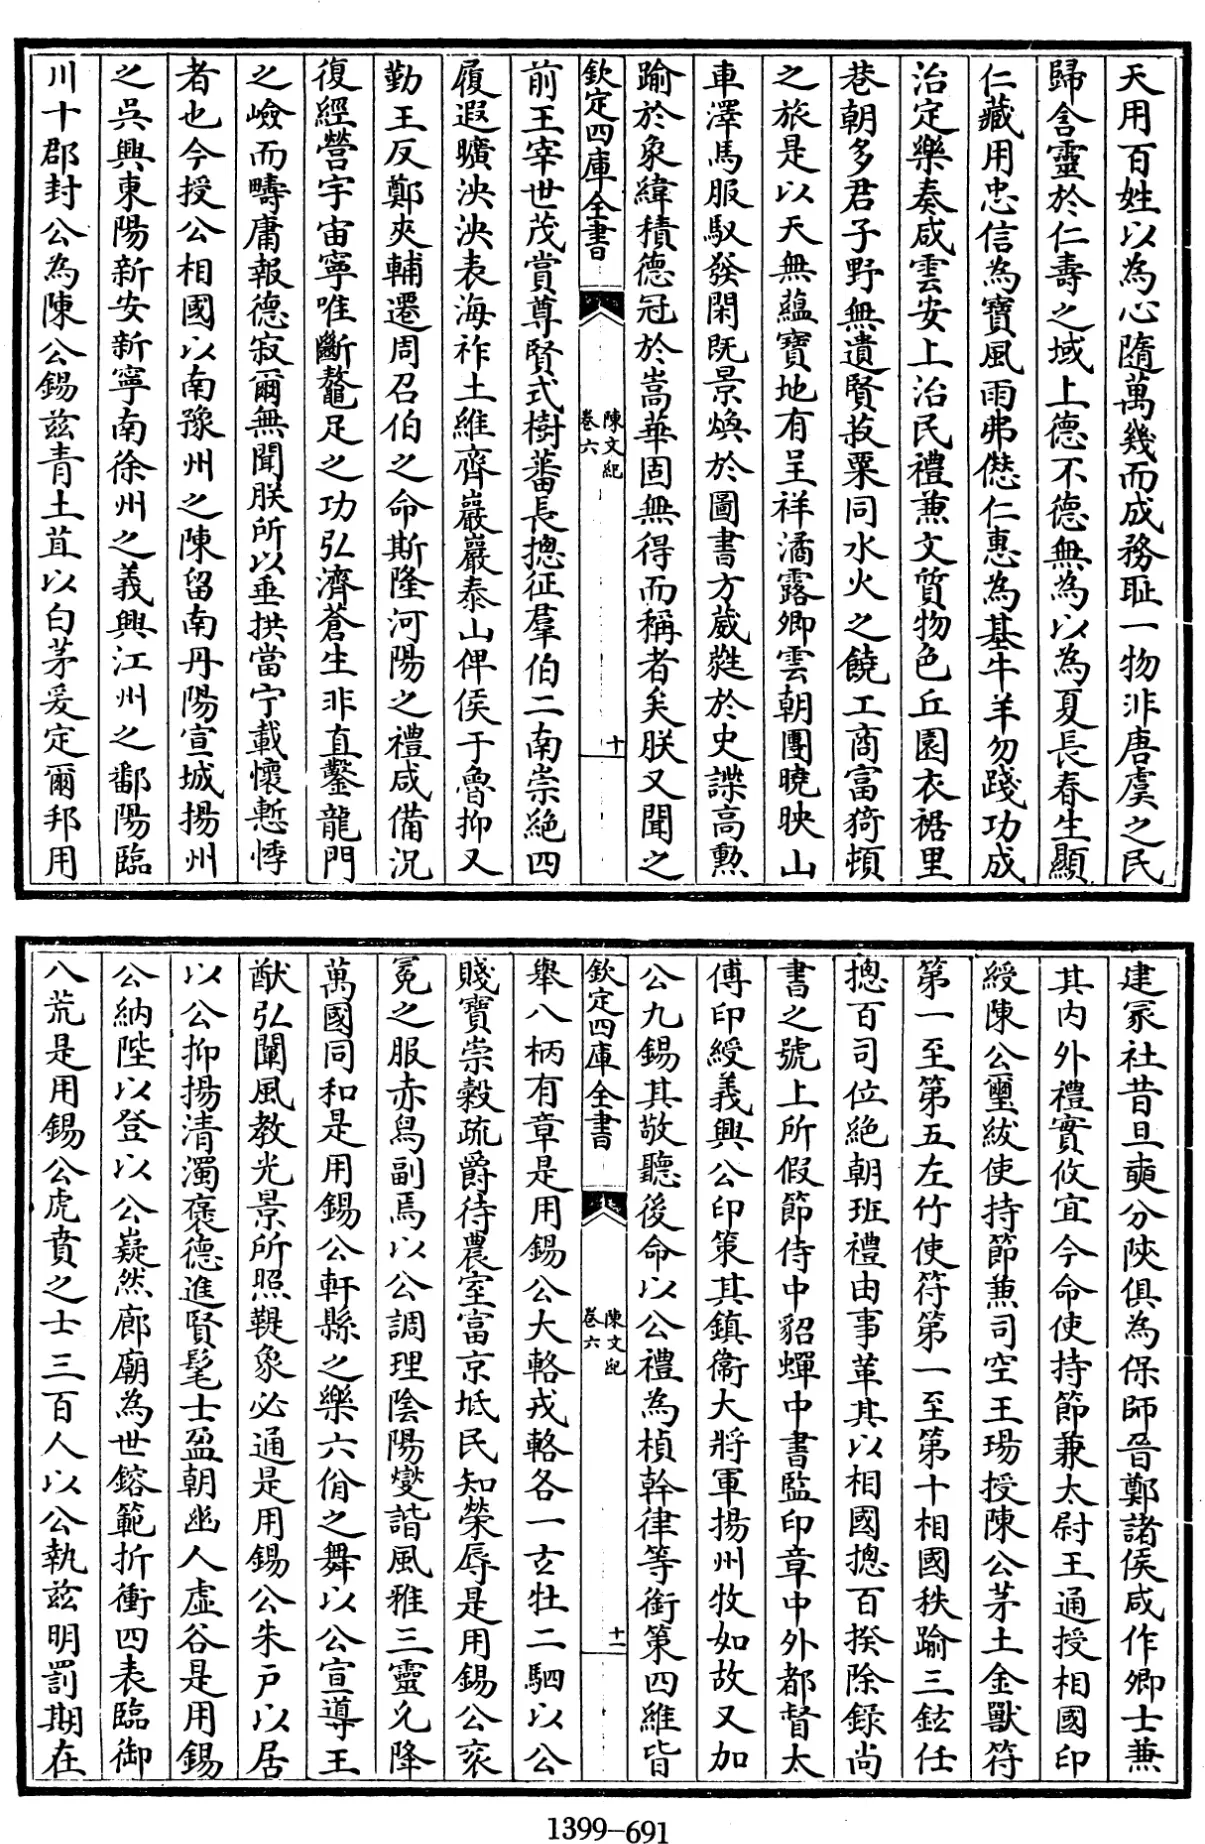 天用百姓以為心隨萬幾而成務耻一物非唐虞之民
歸含靈於仁壽之域上德不德無為以為夏長春生顯
仁藏用忠信為寶風雨弗愆仁惠為基牛羊勿踐功成
治定樂奏咸雲安上治民禮兼文質物色丘園衣裾里
巷朝多君子野無遺賢菽粟同水火之饒工商富猗頓
之旅是以天無蘊寶地有呈祥潏露卿雲朝團曉映山
車澤馬服馭發閑既景煥於圖書方葳蕤於史諜高勲
踰於象緯積德冠於嵩華固無得而稱者矣朕又聞之
欽定四庫全書
陳文紀
卷六
十
前王宰世茂賞尊賢式樹蕃長摠征羣伯二南崇絶四
履遐曠泱泱表海祚土維齊巖巖泰山俾侯于魯抑又
勤王反鄭夾輔遷周召伯之命斯隆河陽之禮咸備況
復經營宇宙寧唯斷鼇足之功弘濟蒼生非直鑿龍門
之嶮而疇庸報德寂爾無聞朕所以垂拱當宁載懷慙悸
者也今授公相國以南豫州之陳留南丹陽宣城揚州
之吳興東陽新安新寧南徐州之義興江州之鄱陽臨
川十郡封公為陳公錫兹青土苴以白茅爰定爾邦用
建冡社昔旦奭分陜俱為保師晉鄭諸侯咸作卿士兼
其内外禮實攸宜今命使持節兼太尉王通授相國印
綬陳公璽紱使持節兼司空王瑒授陳公茅土金獸符
第一至第五左竹使符第一至第十相國秩踰三鉉任
摠百司位絶朝班禮由事革其以相國摠百揆除錄尚
書之號上所假節侍中貂蟬中書監印章中外都督太
傅印綬義興公印策其鎮衞大將軍揚州牧如故又加
公九錫其敬聽後命以公禮為楨幹律等銜策四維皆
欽定四庫全書
陳文紀
卷六
十一
舉八柄有章是用錫公大輅戎輅各一玄牡二駟以公
賤寶崇穀疏爵待農室富京坻民知榮辱是用錫公衮
冕之服赤舄副焉以公調理陰陽燮諧風雅三靈允降
萬國同和是用錫公軒縣之樂六佾之舞以公宣導王
猷弘闡風教光景所照鞮象必通是用錫公朱戸以居
以公抑揚清濁褒德進賢髦士盈朝幽人虚谷是用錫
公納陛以登以公嶷然廊廟為世鎔範折衝四表臨御
八荒是用錫公虎賁之士三百人以公執兹明罰期在
1399-691